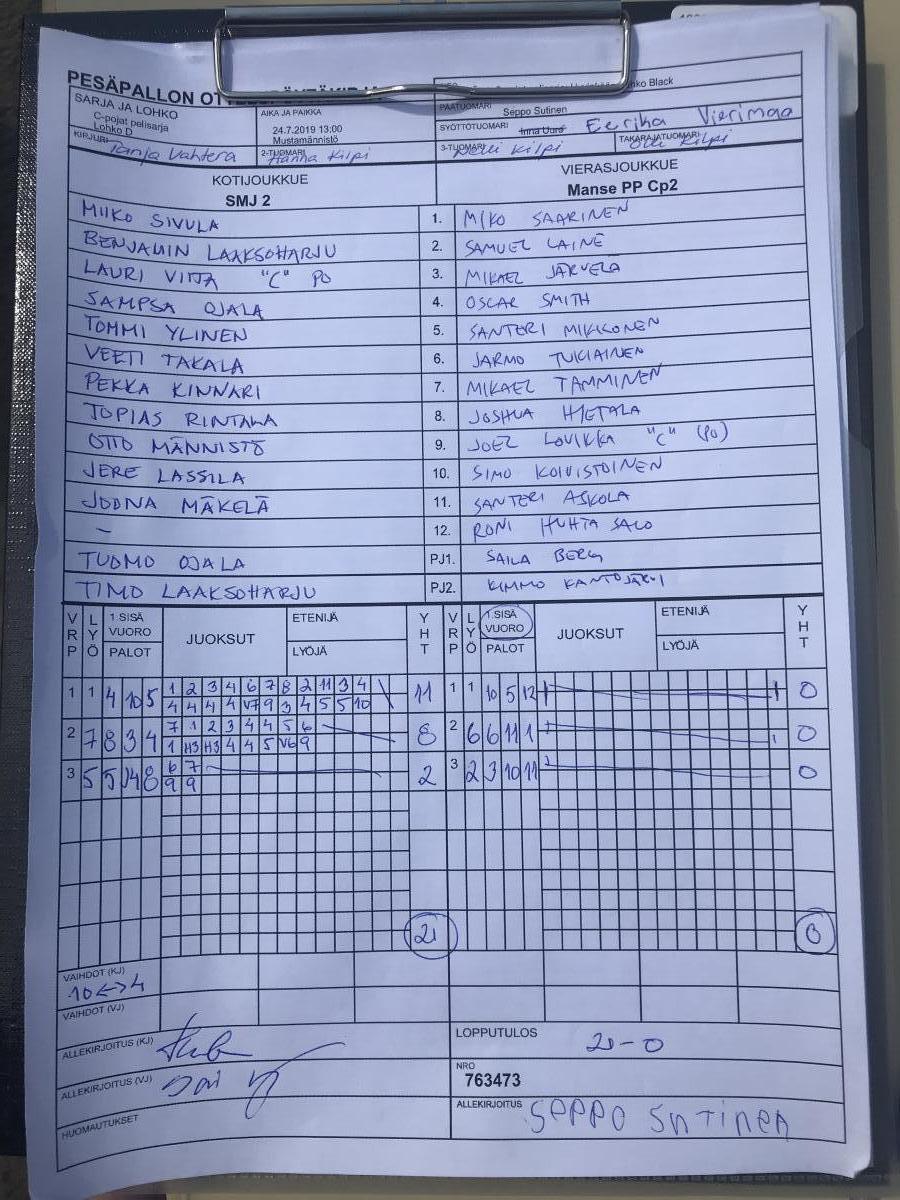 PESÄPALLON
Black
SARJA JA LOHKO
C-pojat pelisarja
Lohko D
AIKA JA PAIKKA
24.7.2019 13:00
Mustamännistö
PÄÄTUOMARI
Seppo Sutinen
SYÖTTÖTUOMARI Eerika Vierimaa
KIRJURI Tanja Vahtera
2-TUOMARI Hanna Kilpi
3-TUOMARI Kilpi
TAKARAJATUOMARI Olli Kilpi
KOTIJOUKKUE
SMJ 2
VIERASJOUKKUE
Manse PP Cp2
MIIKO SIVULA 1. MIKO SAARINEN
BENJAMIN LAAKSOHARJU 2. SAMUEL LAINE
LAURI VIITA "C" PO 3. MIKAEL JÄRVELÄ
SAMPSA OJALA 4. OSCAR SMITH
TOMMI YLINEN 5. SANTERI MIKKONEN
VEETI TAKALA 6. JARMO TUKIAINEN
PEKKA KINNARI 7. MIKAEL TAMMINEN
TOPIAS RINTALA 8. JOSHUA HIETALA
OTTO MÄNNISTÖ 9. JOEL LOVIKKA "C" (PO)
JERE LASSILA 10. SIMO KOIVISTOINEN
JOONA MÄKELÄ 11. SANTERI ASKOLA
– 12. RONI HUHTASALO
TUOMO OJALA PJ1. SAILA BERG
TIMO LAAKSOHARJU PJ2. KIMMO KANTOJÄRVI
VRP LYÖ 1.SISÄ VUORO PALOT JUOKSUT ETENIJÄ LYÖJÄ YHT VRP LYÖ 1.SISÄ VUORO PALOT JUOKSUT ETENIJÄ LYÖJÄ YHT
1 1 4 10 5 1 2 3 4 6 7 8 2 11 3 4 11 1 1 10 5 12 0
4 4 4 4 V7 9 3 4 5 5 10
2 7 8 3 4 7 1 2 3 4 4 5 6 8 2 6 6 11 1 0
1 H3 H3 4 4 5 V6 9
3 5 5 8 6 7 2 3 2 3 10 11 0
9 9
21 0
VAIHDOT (KJ)
10<->4
VAIHDOT (VJ)
ALLEKIRJOITUS (KJ)
LOPPUTULOS
21-0
ALLEKIRJOITUS (VJ)
NRO
763473
HUOMAUTUKSET
ALLEKIRJOITUS SEPPO SUTINEN